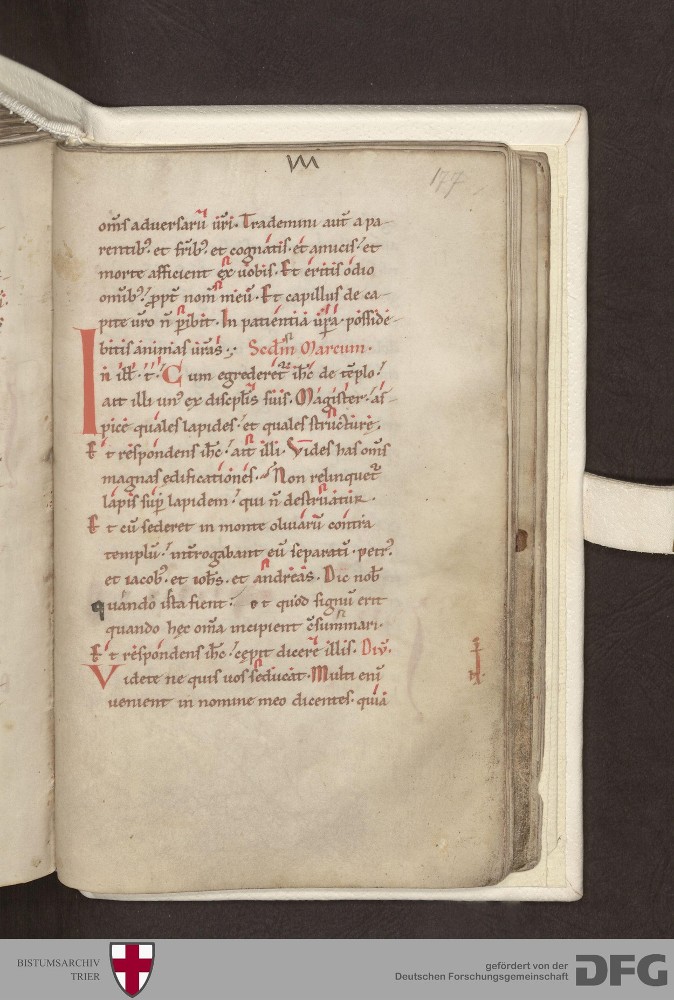 177
om̅s adversariı̅ ur̅i. Trademini aut̅ a pa-
rentib; et fr̅ib; et cognatis. et amicis. et
morte afficient ex vobis. Et eritis odio
om̅ib; ꝓpt̅ nom̅ meu̅. Et capillus de ca-
pite ur̅o n̅ ꝑibit. In patientia ur̅a. posside-
bitis animas ur̅as. Secdm̅ Marcum.
In ill̅. t̅. Cum egrederet̅ ih̅c de te̅plo.
ait illi un; ex discipl̅is suis. Magister. as-
pice quales lapides. et quales structurę.
Et respondens ih̅c. ait illi. Vides has om̅s
magnas edificationes. Non relinquet̅
lapis sup̅ lapidem. qui n̅ destruatur.
Et cu̅ sederet in monte olivaru̅ contra
templu̅. int̅rogabant eu̅ separati̅. petr;
et iacob; et ioh̅s. et andreas. Dic nob̅
quando ista fient. et quod signu̅ erit
quando hęc om̅a incipient c̅summari.
Et respondens ih̅c. cępit dicere illis.
Videte ne quis vos seducat. Multi eni̅
venient in nomine meo dicentes. quia
BISTUMSARCHIV
TRIER
gefördert von der
Deutschen Forschungsgemeinschaft
DFG